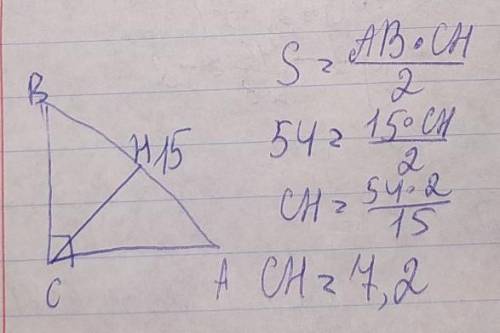 B
H 15
C
A
S = AB • CH / 2
54 = 15 • CH / 2
CH = 54 • 2 / 15
CH = 7,2